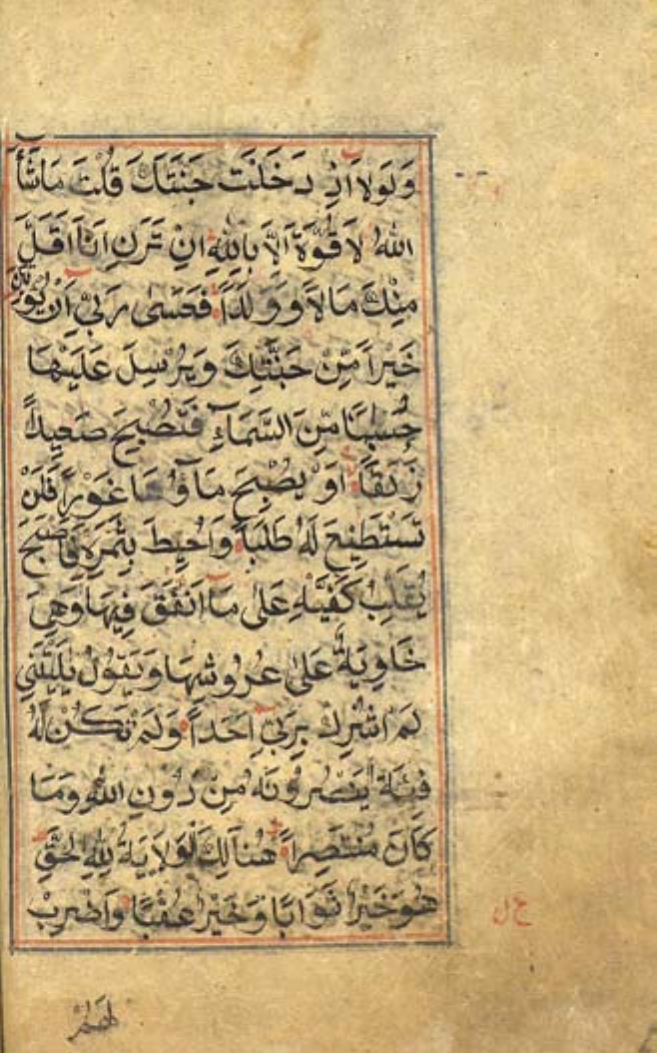 وَلَوْلَا اِذْ دَخَلْتَ جَنَّتَكَ قُلْتَ مَا شَآءَ
اللهُ لَا قُوَّةَ اِلَّا بِاللهِ اِنْ تَرَنِ اَنَا اَقَلَّ
مِنْكَ مَالًا وَوَلَدًا فَعَسٰى رَبّٖٓ اَنْ يُؤْتِيَنِ
خَيْرًا مِّنْ جَنَّتِكَ وَيُرْسِلَ عَلَيْهَا
حُسْبَانًا مِّنَ السَّمَآءِ فَتُصْبِحَ صَعِيدًا
زَلَقًا اَوْ يُصْبِحَ مَآؤُهَا غَوْرًا فَلَنْ
تَسْتَطِيعَ لَهُ طَلَبًا وَاُحِيطَ بِثَمَرِهِ فَاَصْبَحَ
يُقَلِّبُ كَفَّيْهِ عَلٰى مَآ اَنْفَقَ فِيهَا وَهِيَ
خَاوِيَةٌ عَلٰى عُرُوشِهَا وَيَقُولُ يٰلَيْتَنِي
لَمْ اُشْرِكْ بِرَبِّي اَحَدًا وَلَمْ تَكُنْ لَّهُ
فِئَةٌ يَنْصُرُونَهُ مِنْ دُونِ اللهِ وَمَا
كَانَ مُنْتَصِرًا هُنَالِكَ الْوَلَايَةُ لِلّٰهِ الْحَقِّ
هُوَ خَيْرٌ ثَوَابًا وَخَيْرٌ عُقْبًا وَاضْرِبْ
لَهُمْ